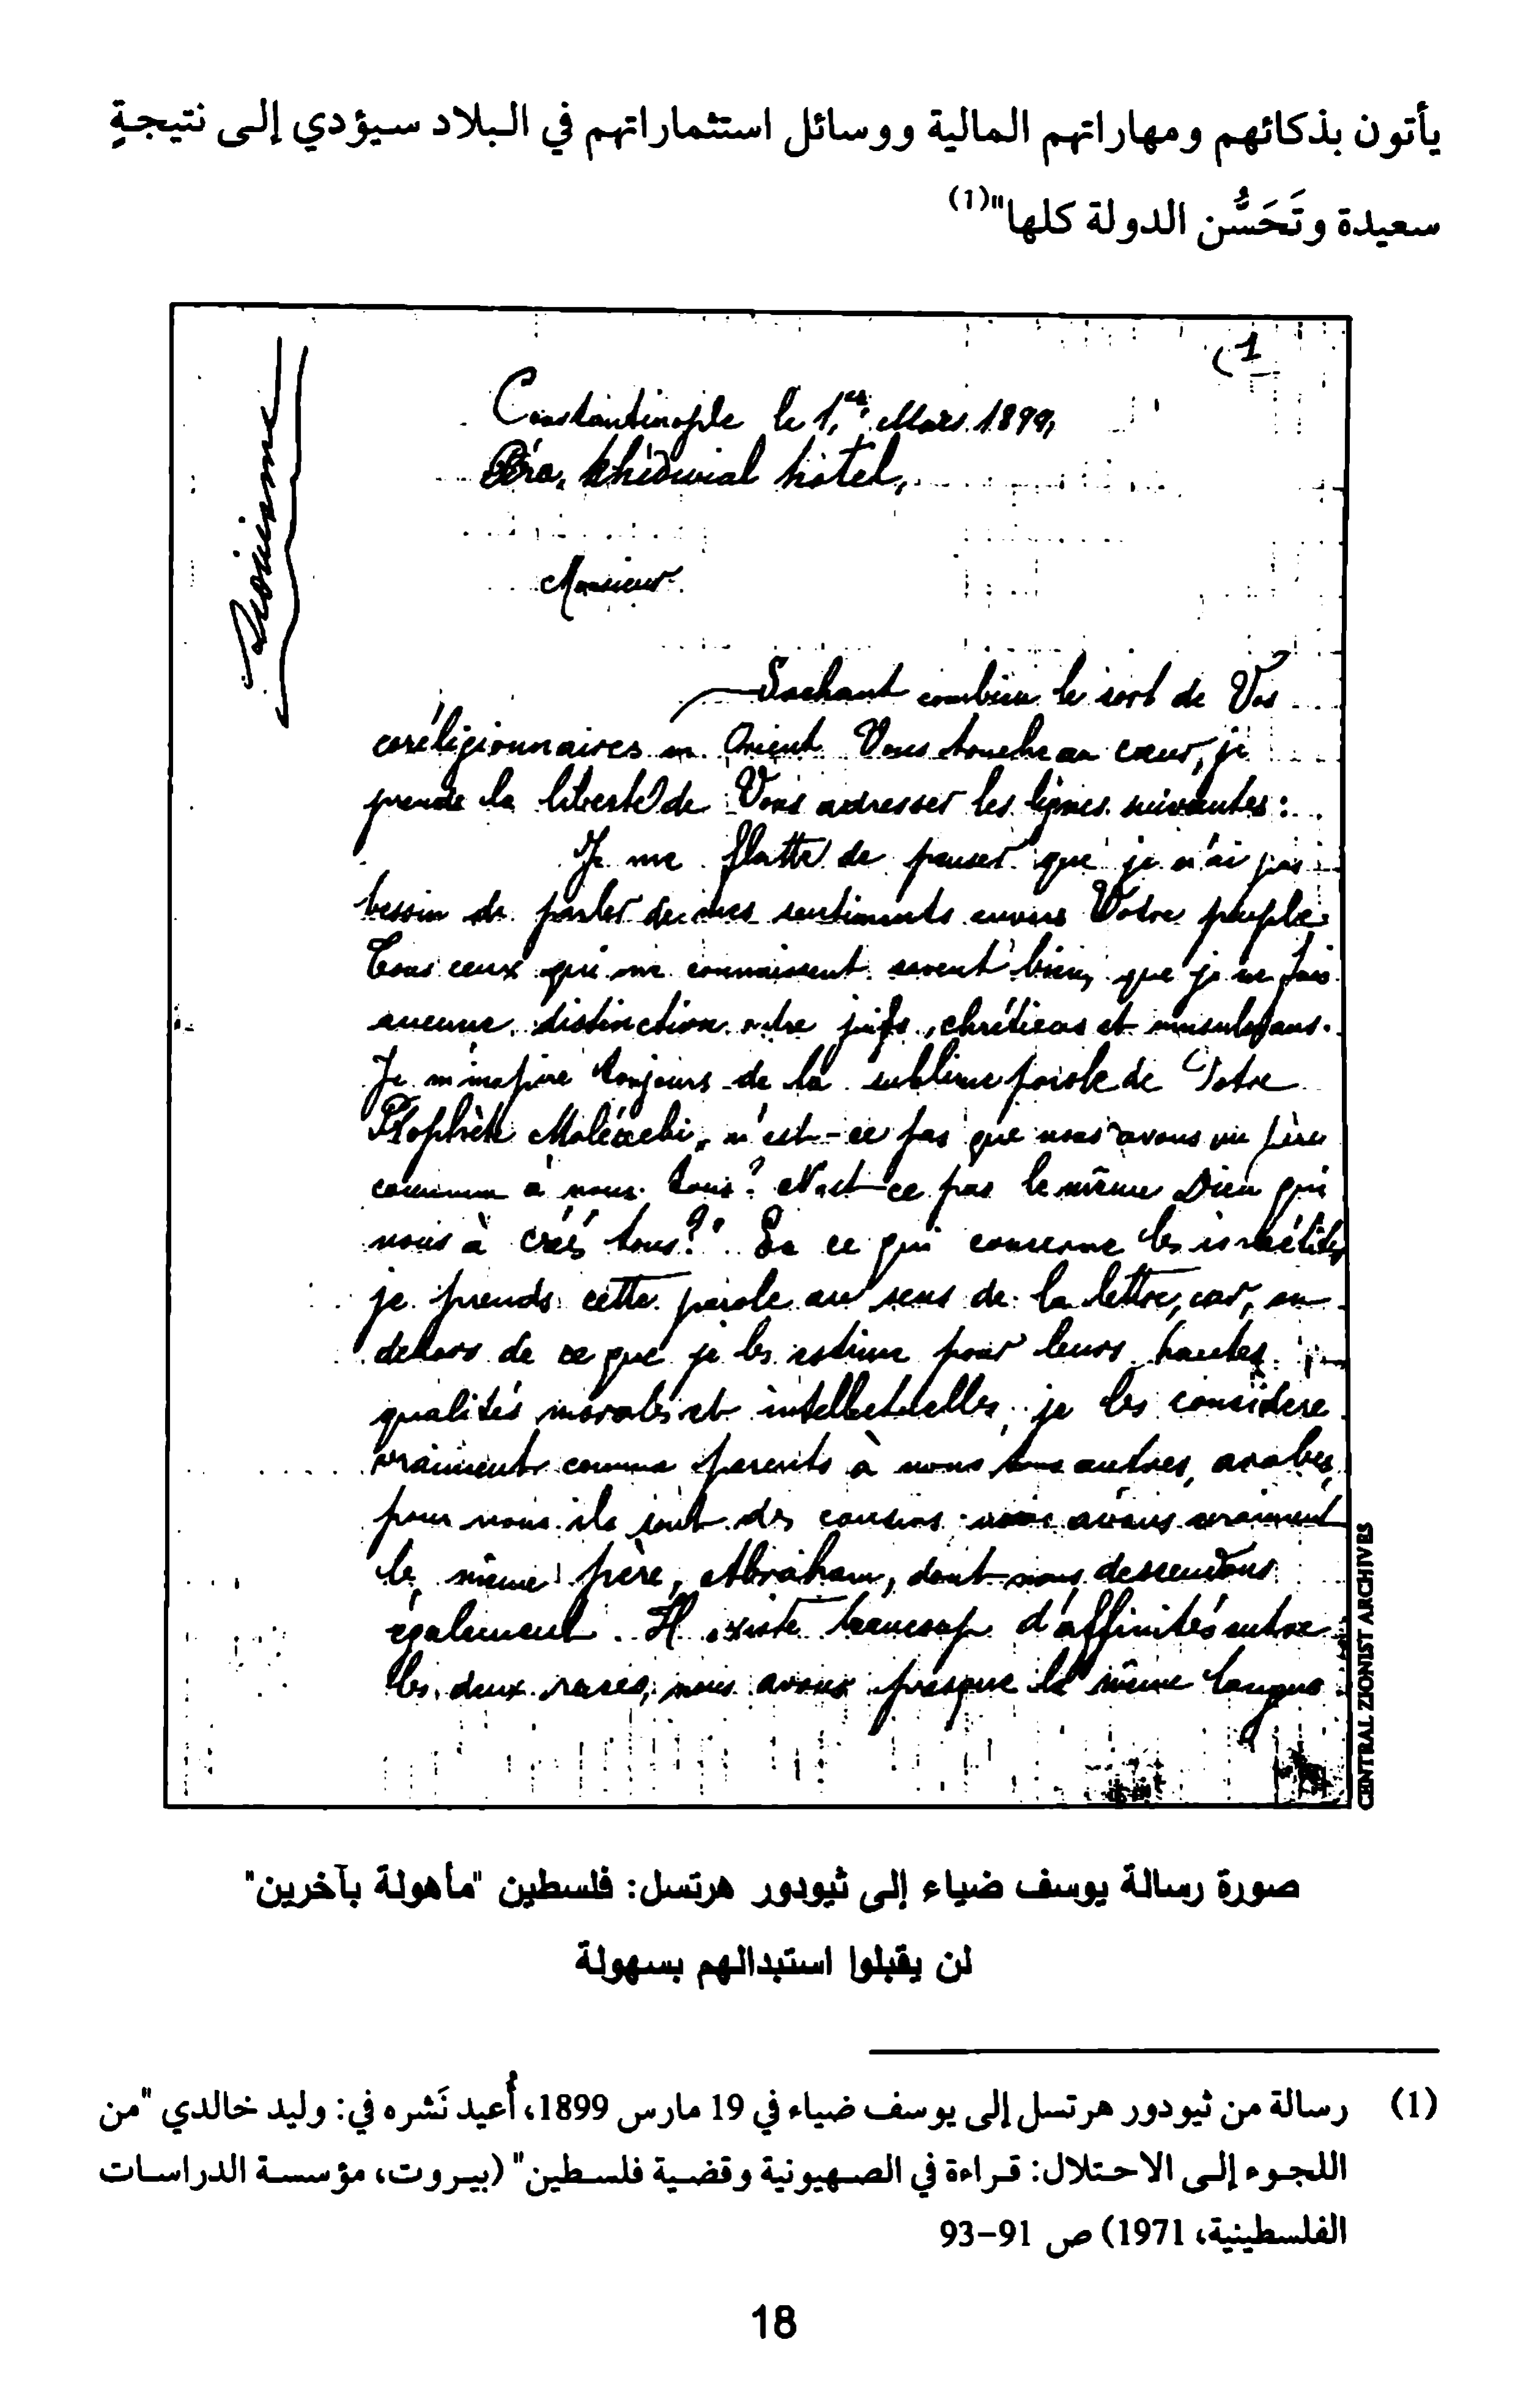 يأتون بذكائهم ومهاراتهم المالية ووسائل استثماراتهم في البلاد سيؤدي إلى نتيجةٍ
سعيدة وتَحَسُّن الدولة كلها"(1)
(1
Sionisme
Constantinople le 1er Mars 1899,
Péra, Khédivial hôtel,
Monsieur
Sachant combien le sort de Vos
coréligionnaires en Orient Vous touche au cœur, je
prends la liberté de Vous adresser les lignes suivantes:
Je me flatte de penser que je n'ai pas
besoin de parler de mes sentiments envers Votre peuple.
Tous ceux qui me connaissent savent bien, que je ne fais
aucune distinction entre juifs, chrétiens et musulmans.
Je m'inspire toujours de la sublime parole de Votre
Prophète Malachi, n'est-ce pas que nous avons un père
commun à nous tous? N'est-ce pas le même Dieu qui
nous à créé tous?" En ce qui concerne les israélites
je prends cette parole au sens de la lettre, car, en
dehors de ce que je les estime pour leurs hautes
qualités morales et intellectuelles, je les considère
vraiment comme parents à nous autres, arabes,
pour nous ils sont des cousins nous avons vraiment
le même père, Abraham, dont nous descendons
également. Il existe beaucoup d'affinités entre
les deux races, nous avons presque la même langue
CENTRAL ZIONIST ARCHIVES
صورة رسالة يوسف ضياء إلى ثيودور هرتسل: فلسطين "مأهولة بآخرين"
لن يقبلوا استبدالهم بسهولة
(1) رسالة من ثيودور هرتسل إلى يوسف ضياء في 19 مارس 1899، أُعيد نَشره في: وليد خالدي "من
اللجوء إلى الاحتلال: قراءة في الصهيونية وقضية فلسطين" (بيروت، مؤسسة الدراسات
الفلسطينية، 1971) ص 91-93
18